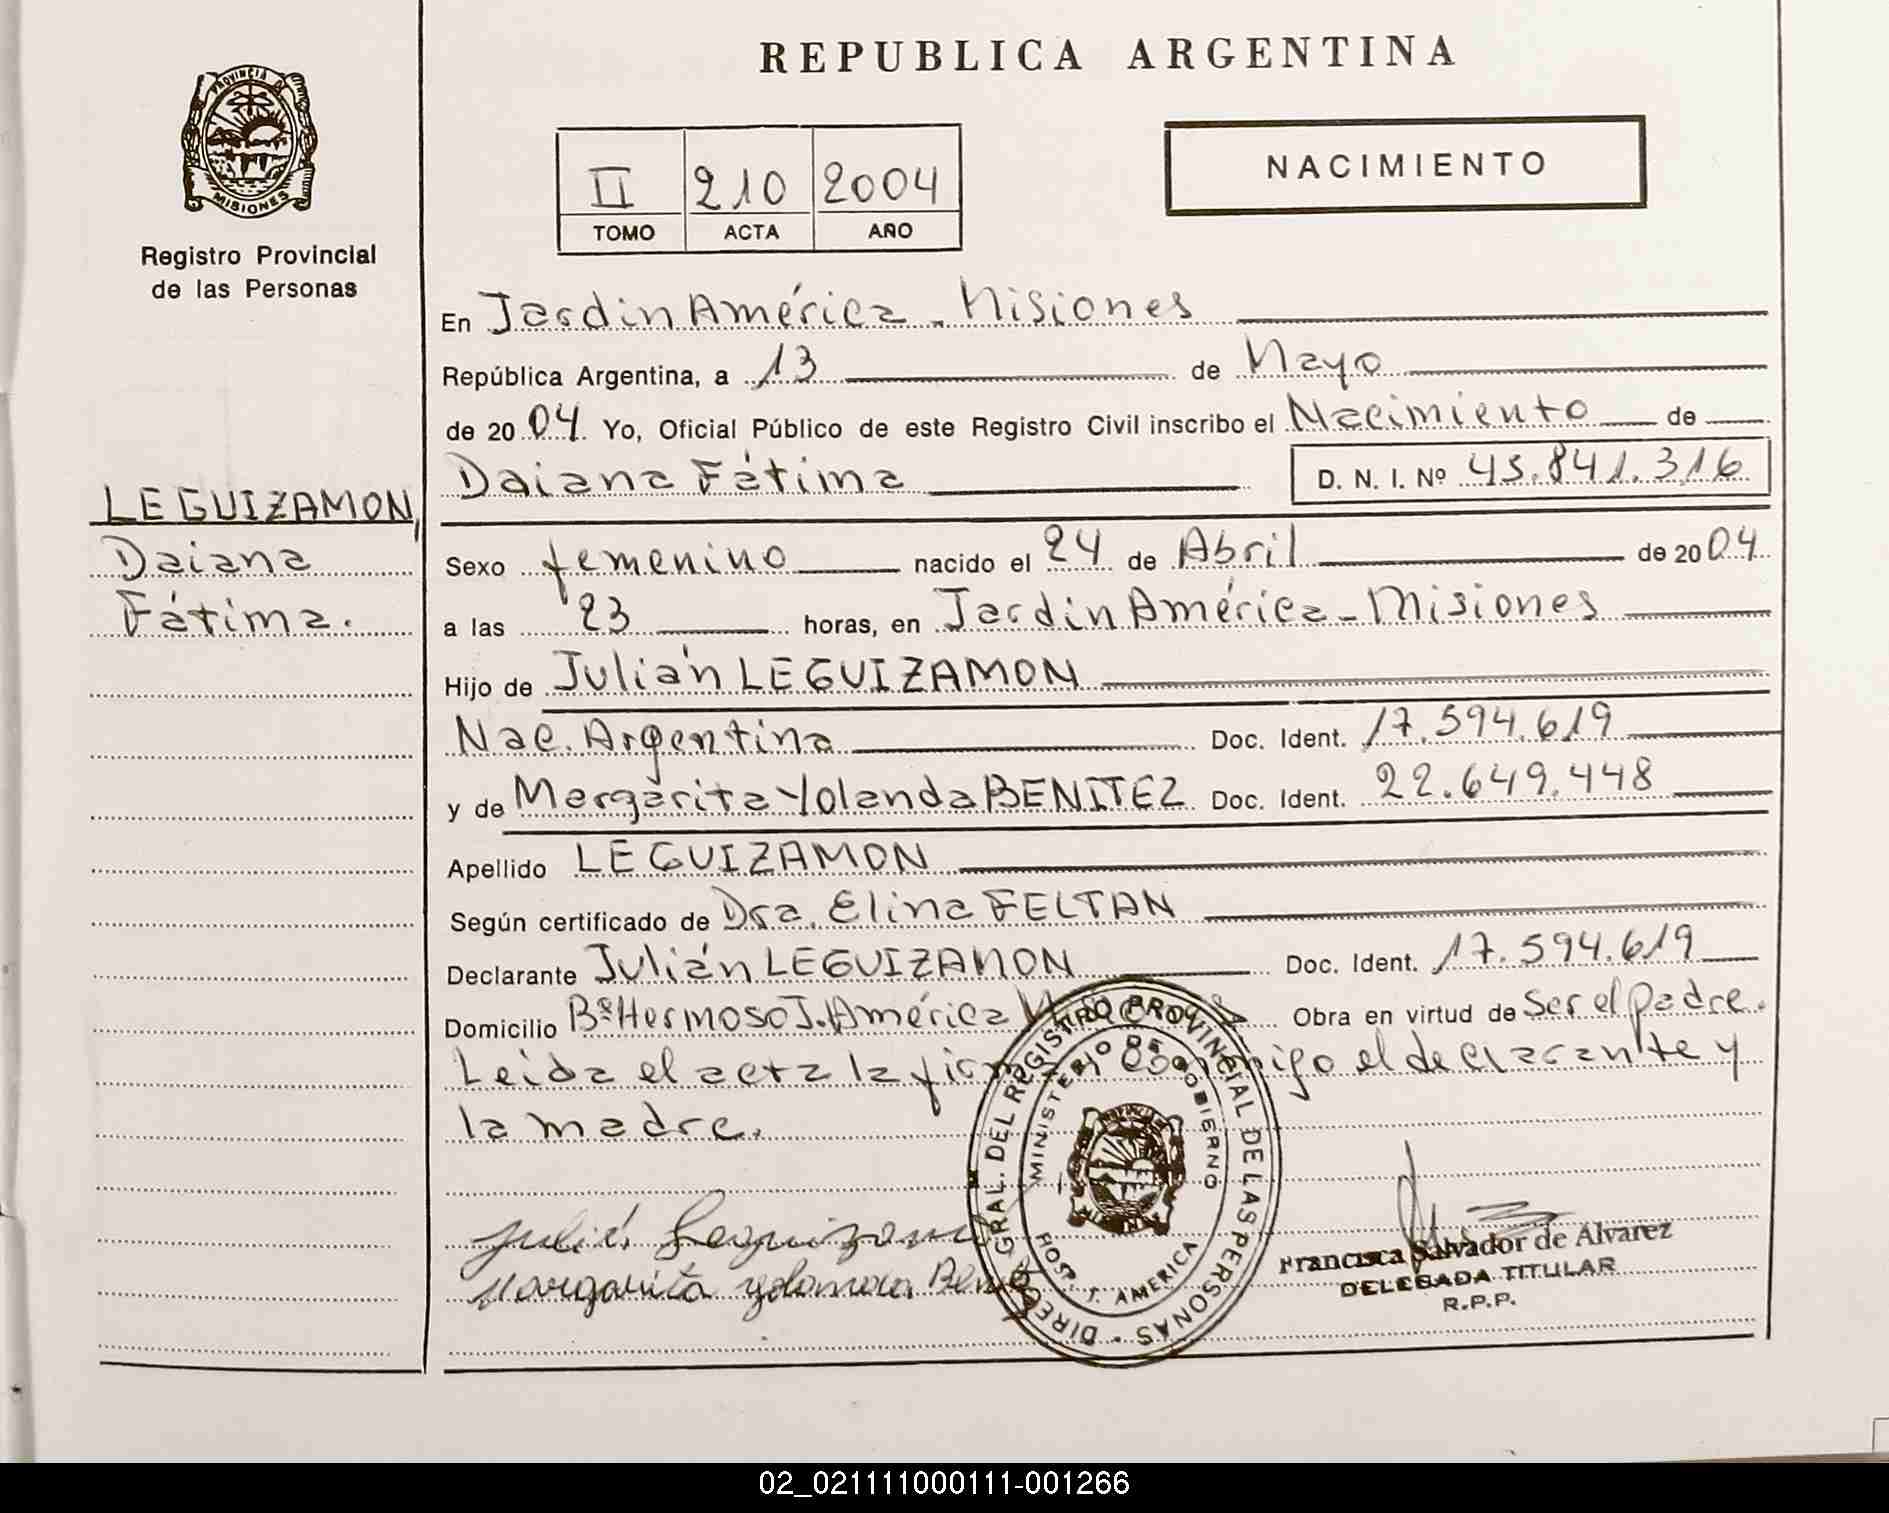 REPUBLICA ARGENTINA
PROVINCIA DE
MISIONES
Registro Provincial
de las Personas
II 210 2004
TOMO ACTA AÑO
NACIMIENTO
En Jardin América - Misiones
República Argentina, a 13 de Mayo
de 2004 Yo, Oficial Público de este Registro Civil inscribo el Nacimiento de
Daiana Fátima D. N. I. Nº 45.841.316
LEGUIZAMON,
Daiana
Fátima.
Sexo femenino nacido el 24 de Abril de 2004
a las 23 horas, en Jardin América - Misiones
Hijo de Julián LEGUIZAMON
Nac. Argentina Doc. Ident. 17.594.619
y de Margarita Yolanda BENITEZ Doc. Ident. 22.649.448
Apellido LEGUIZAMON
Según certificado de Dra. Elina FELTAN
Declarante Julián LEGUIZAMON Doc. Ident. 17.594.619
Domicilio Bº Hermoso J. América Obra en virtud de Ser el padre.
Leida el acta la firman conmigo el declarante y
la madre.
DIREC. GRAL. DEL REGISTRO PROVINCIAL DE LAS PERSONAS
MINISTERIO DE GOBIERNO
HOSP. J. AMERICA
Julián Leguizamon
Margarita Yolanda
Francisca Salvador de Alvarez
DELEGADA TITULAR
R.P.P.
02_021111000111-001266